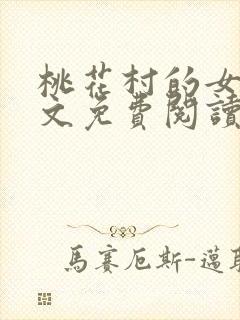 桃花村的女
文免費閱讀
馬賽厄斯-邁耶